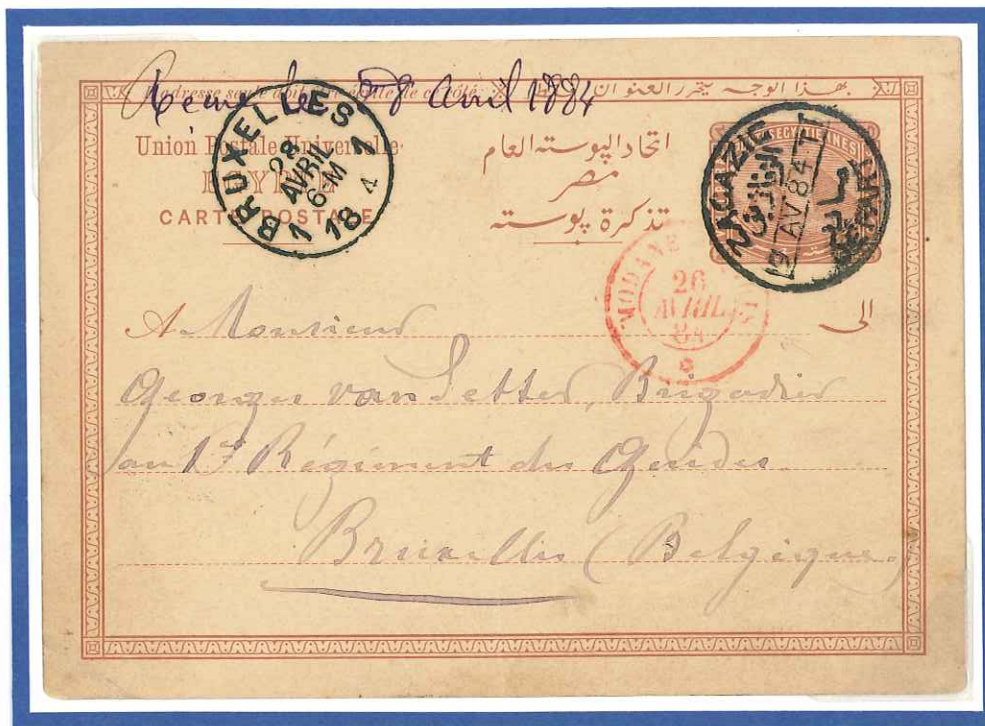 Reçue le 28 Avril 1884
L'adresse seule doit être écite de ce côté بهذا الوجه يتحرر العنوان فقط
Union Postale Universelle
EGYPTE
CARTE POSTALE
اتحاد البوسته العام
مصر
تذكرة بوسته
BRUXELLES 1
28
AVRIL
6-M
1884
ZAGAZIG
الزقازيق
19 AV 84 T I
DEPART
MODANE
26
AVRIL
84
الى
A Monsieur
Georges van Setter, Brigadier
au 1r Régiment des Guides.
Bruxelles (Belgique)